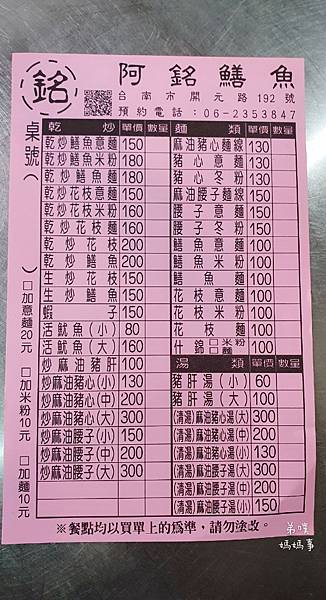 銘 阿銘鱔魚
台南市開元路192號
預約電話:06-2353847
桌號( )
□加意麵20元 □加米粉10元 □加麵10元
乾炒 單價 數量
乾炒鱔魚意麵 150
乾炒鱔魚米粉 180
乾炒鱔魚麵 180
乾炒花枝意麵 150
乾炒花枝米粉 160
乾炒花枝麵 160
乾炒花枝 200
乾炒鱔魚 200
生炒花枝 150
生炒鱔魚 150
蝦子 150
活魷魚(小) 80
活魷魚(大) 160
炒麻油豬肝 100
炒麻油豬心(小) 130
炒麻油豬心(中) 200
炒麻油豬心(大) 300
炒麻油腰子(小) 150
炒麻油腰子(中) 200
炒麻油腰子(大) 300
麵類 單價 數量
麻油豬心麵線 130
豬心意麵 130
豬心冬粉 130
麻油腰子麵線 150
腰子意麵 150
腰子冬粉 150
鱔魚意麵 100
鱔魚米粉 100
鱔魚麵 100
花枝意麵 100
花枝米粉 100
花枝麵 100
什錦 □米粉 □麵 100
湯類 單價 數量
豬肝湯(小) 60
豬肝湯(大) 100
(清湯)麻油豬心湯(大) 300
(清湯)麻油豬心湯(中) 200
(清湯)麻油豬心湯(小) 130
(清湯)麻油腰子湯(大) 300
(清湯)麻油腰子湯(中) 200
(清湯)麻油腰子湯(小) 150
※餐點均以買單上的為準,請勿塗改。
媽媽事